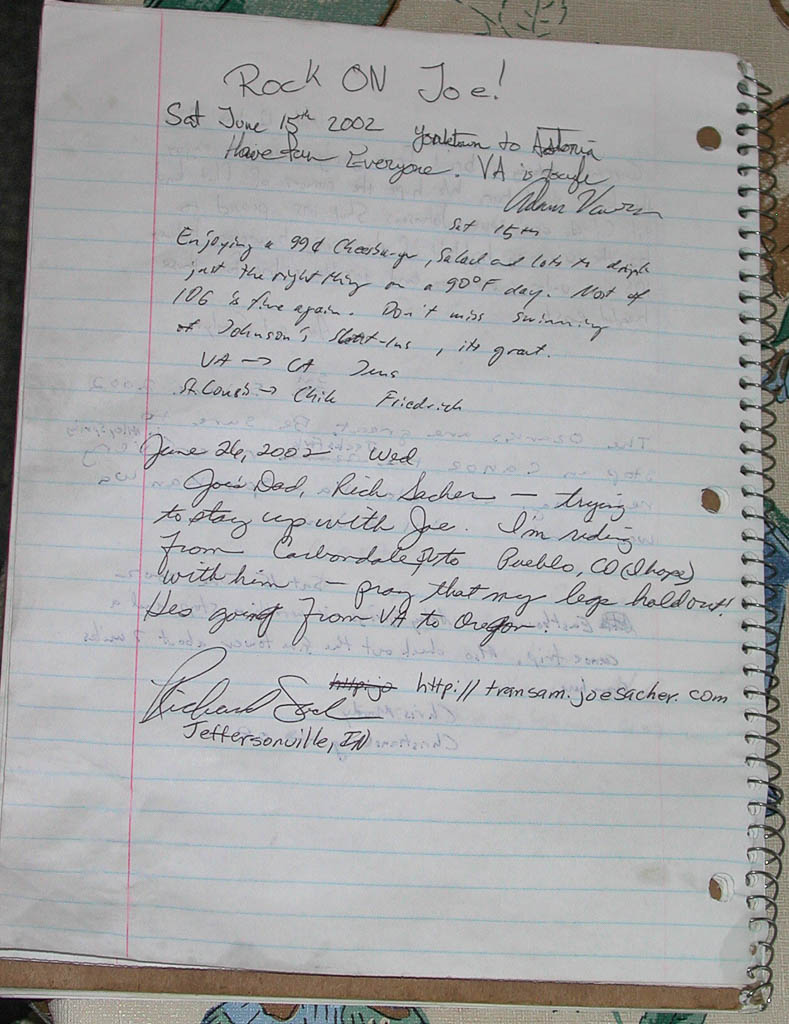 Rock ON Joe!
Sat June 15th 2002 Yorktown to Astoria
Have fun Everyone. VA is tough
Adam
Sat 15th
Enjoying a 99¢ Cheeseburger, Salad and lots to drink
just the right thing on a 90°F day. Most of
106 is fine again. Don't miss swimming
at Johnson's , its great.
VA → CA Jens
St. Louis → Chile Friedrich
June 26, 2002 Wed
Joe's Dad, Rich Sacher — trying
to stay up with Joe. I'm riding
from Carbondale to Pueblo, CO (I hope)
with him — pray that my legs hold out!
Hes going from VA to Oregon.
http://transam.joesacher.com
Richard Sacher
Jeffersonville, IN